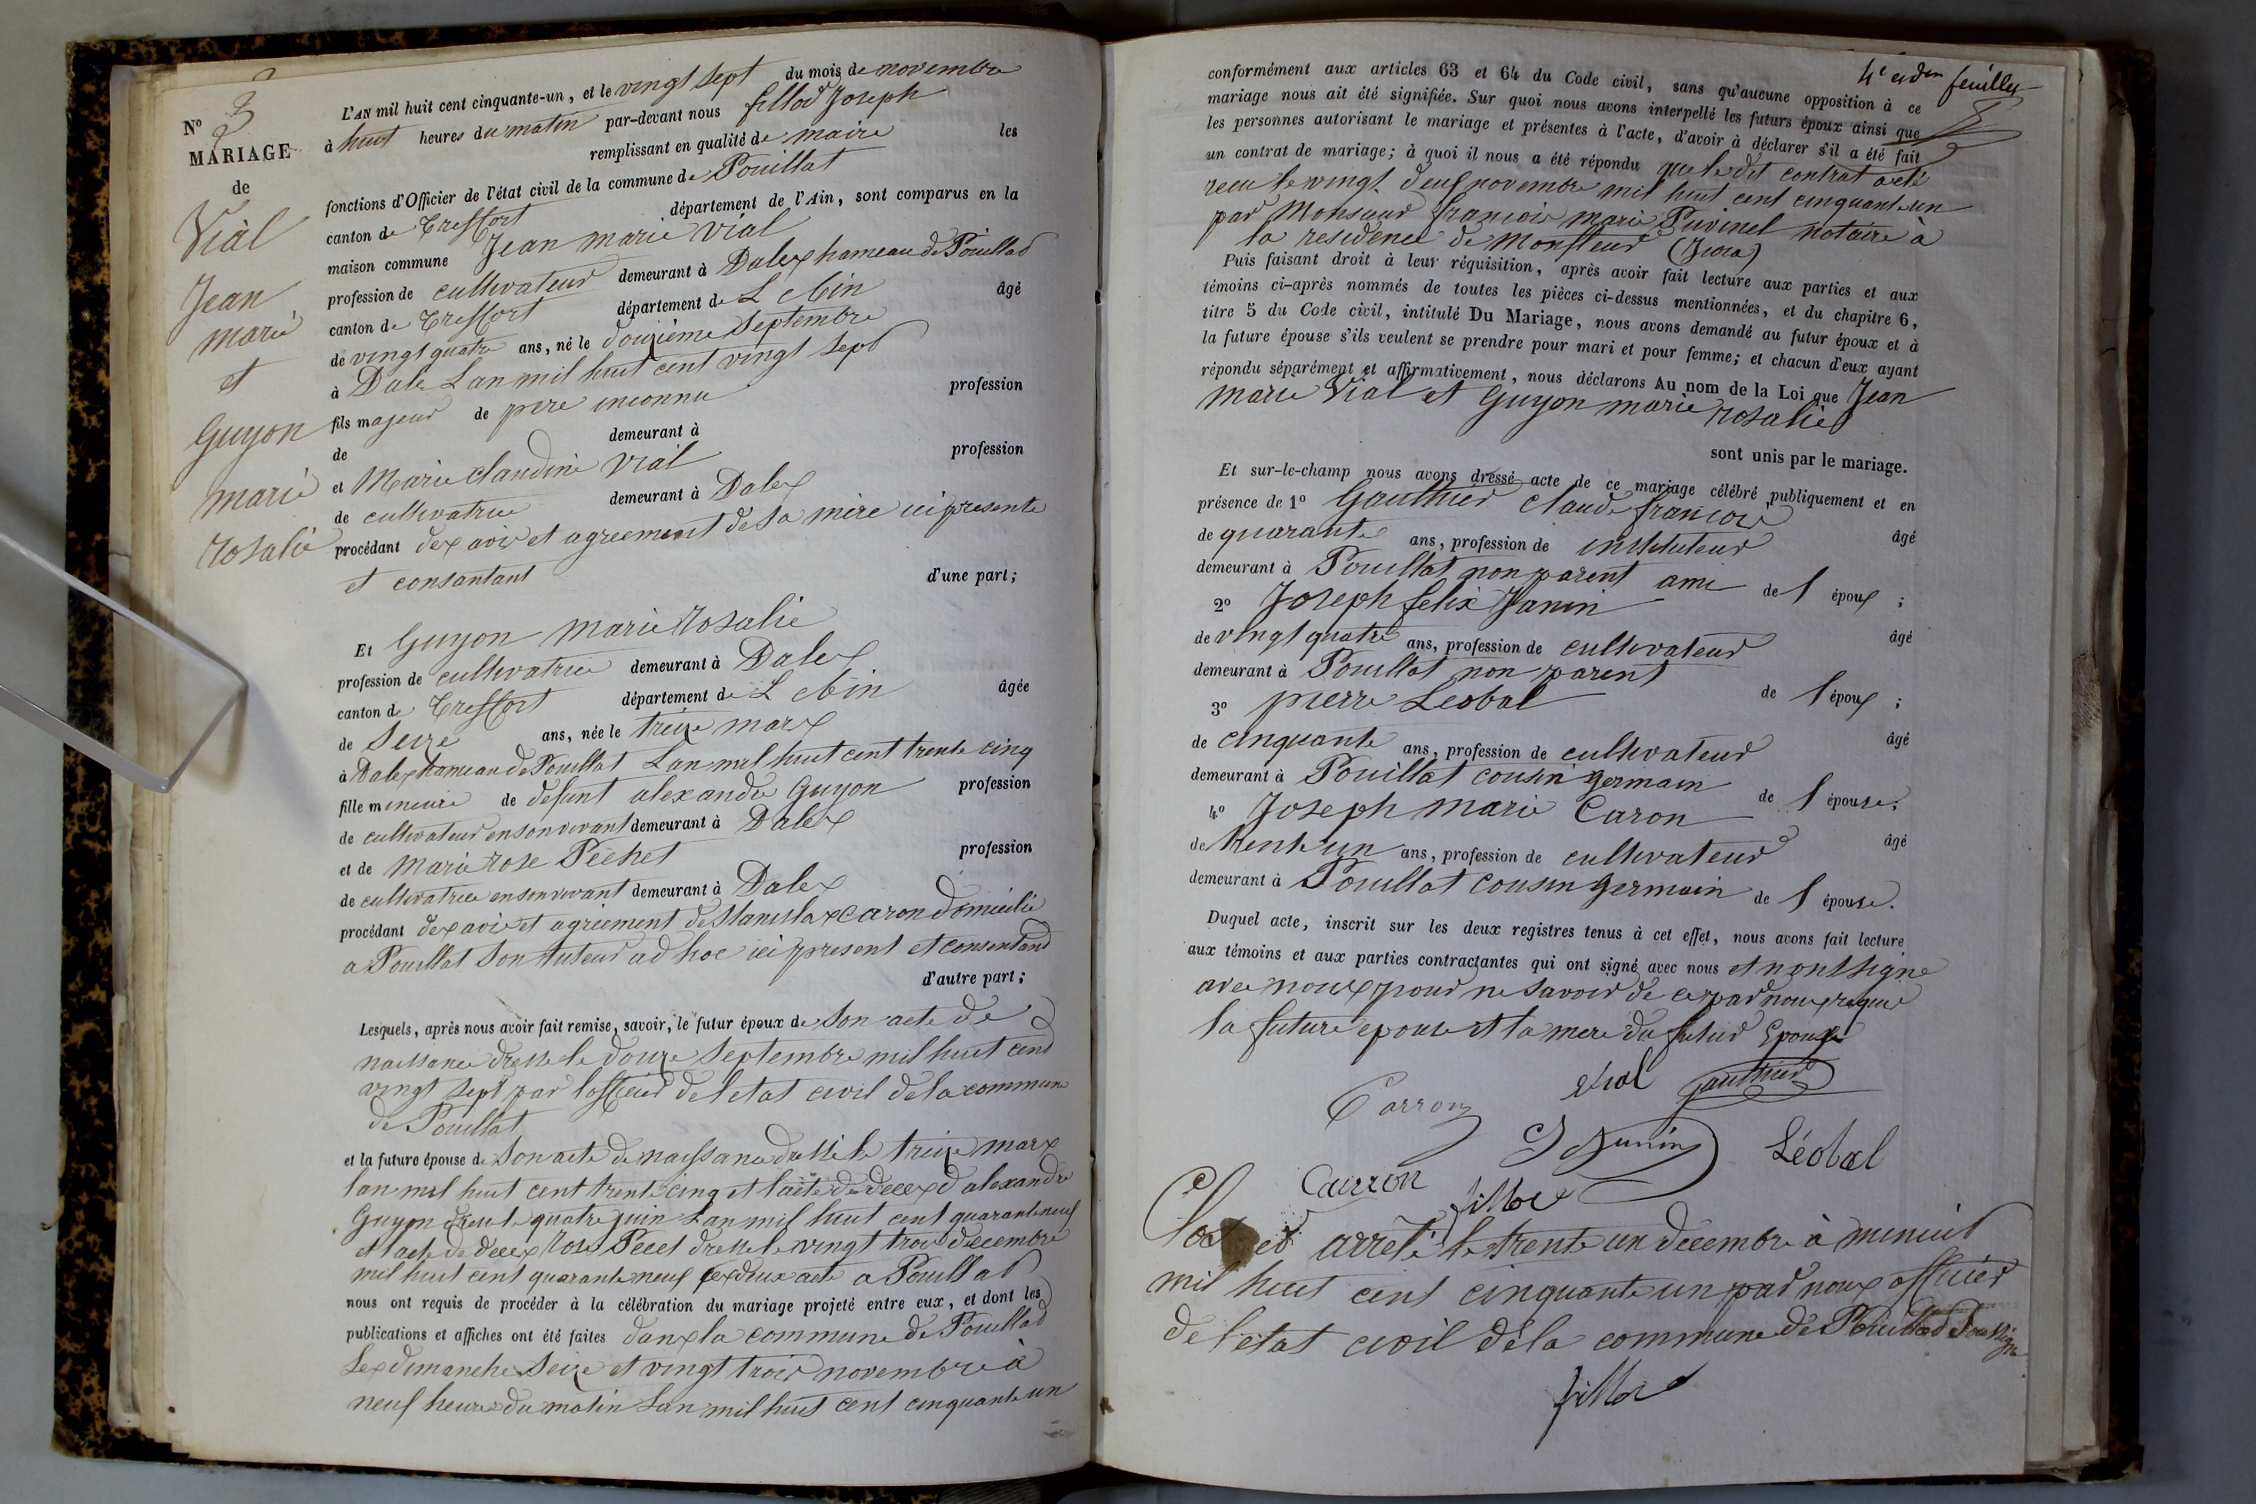 N° 3
MARIAGE
de
Vial
Jean
marie
et
Guyon
marie
rosalie
L'AN mil huit cent cinquante-un, et le vingt sept du mois de novembre
à huit heures du matin par-devant nous fillod Joseph
remplissant en qualité de maire les
fonctions d'Officier de l'état civil de la commune de Pouillat
canton de Treffort département de l'Ain, sont comparus en la
maison commune Jean marie vial
profession de cultivateur demeurant à Dalex hameau de Pouillad
canton de Treffort département de L Ain âgé
de vingt quatre ans, né le douzième Septembre
à Dale L an mil huit cent vingt sept
fils majeur de père inconnu profession
de demeurant à
et Marie claudine vial profession
de cultivatrice demeurant à Dalex
procédant dex avis et agreement de sa mère ici presente
et consantant d'une part;
Et Guyon marie rosalie
profession de cultivatrice demeurant à Dalex
canton de Treffort département de L Ain âgée
de Seize ans, née le treize marx
à Dalex hameau de Pouillat L an mil huit cent trente cinq
fille mineure de defunt alexandre Guyon profession
de cultivateur en son vivant demeurant à Dalex
et de marie rose Péchet profession
de cultivatrice en son vivant demeurant à Dalex
procédant dex avis et agriement de Stanislax caron domicilié
a Pouillat Son tuteur ad hoc ici present et consentand
d'autre part;
Lesquels, après nous avoir fait remise, savoir, le futur époux de Son acte de
naissance dressé le douze Septembre mil huit cend
vingt sept par lofficier de l etat civil de la commune
de Pouillat
et la future épouse de Son acte de naissance dressé le treize marx
lan mil huit cent trente cinq et lacte de decex d alexandre
Guyon dresse le quatre juin Lan mil huit cent quarante neuf
et lacte de decex rose Pecet dresse le vingt troix decembre
mil huit cent quarante neuf cex deux acte a Pouillad
nous ont requis de procéder à la célébration du mariage projeté entre eux, et dont les
publications et affiches ont été faites danx la commune de Pouillad
Lex dimanche Seize et vingt troix novembre à
neuf heure du matin Lan mil huit cent cinquante un
4e et dern feuillet
conformément aux articles 63 et 64 du Code civil, sans qu'aucune opposition à ce
mariage nous ait été signifiée. Sur quoi nous avons interpellé les futurs époux ainsi que
les personnes autorisant le mariage et présentes à l'acte, d'avoir à déclarer s'il a été fait
un contrat de mariage; à quoi il nous a été répondu que le dit contrat a eté
recu le vingt deux novembre mil huit cent cinquante un
par Monsieur francois marie Puvinel notaire à
la residence de Monfleur (Jura)
Puis faisant droit à leur réquisition, après avoir fait lecture aux parties et aux
témoins ci-après nommés de toutes les pièces ci-dessus mentionnées, et du chapitre 6,
titre 5 du Code civil, intitulé Du Mariage, nous avons demandé au futur époux et à
la future épouse s'ils veulent se prendre pour mari et pour femme; et chacun d'eux ayant
répondu séparément et affirmativement, nous déclarons Au nom de la Loi que Jean
marie Vial et Guyon marie rosalie
sont unis par le mariage.
Et sur-le-champ nous avons dressé acte de ce mariage célébré publiquement et en
présence de 1° Gauthier claude francois
de quarante ans, profession de instituteur âgé
demeurant à Pouillat non parent ami de l époux ;
2° Joseph felix Janin
de vingt quatre ans, profession de cultivateur âgé
demeurant à Pouillat non parent de l époux ;
3° pierre Leobal
de cinquante ans, profession de cultivateur âgé
demeurant à Pouillat cousin germain de l épouse;
4° Joseph marie Caron
de trente un ans, profession de cultivateur âgé
demeurant à Pouillat cousin germain de l épouse.
Duquel acte, inscrit sur les deux registres tenus à cet effet, nous avons fait lecture
aux témoins et aux parties contractantes qui ont signé avec nous et nont signe
avec noux pour ne Savoir de ce par noux requis
la future epouse et la mere du futur Epoux
Vial Gauthier
Carron
Janin Léobal
Caurron fillod
Clos et arrêté le trente un decembre à menuid
mil huit cent cinquante un par noux officier
de l etat civil de la commune de Pouillad Soussigne
fillod